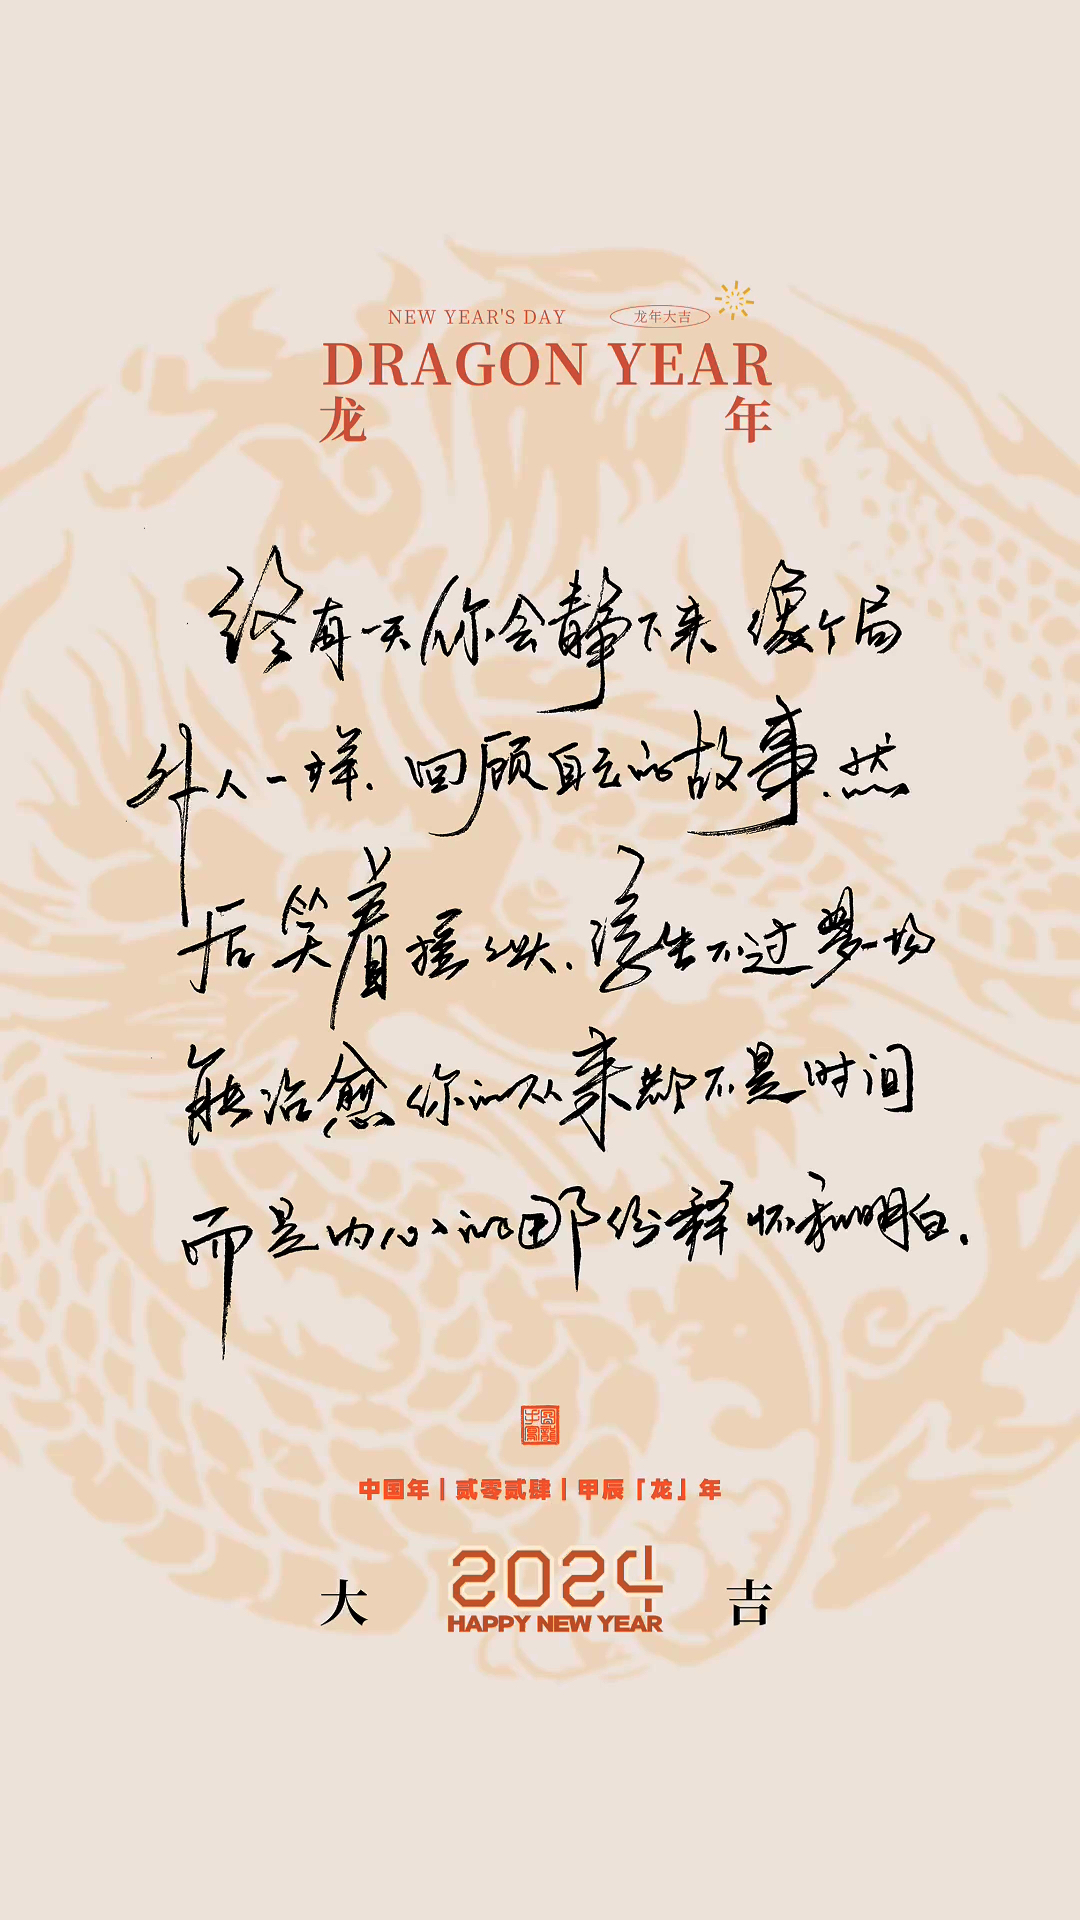 NEW YEAR'S DAY 龙年大吉
DRAGON YEAR
龙 年
终有一天你会静下来 像个局
外人一样.回顾自己的故事.然
后笑着摇摇头.浮生不过梦一场
能治愈你的从来都不是时间
而是内心的那份释怀和明白.
中国年|贰零贰肆|甲辰「龙」年
大 2024 吉
HAPPY NEW YEAR